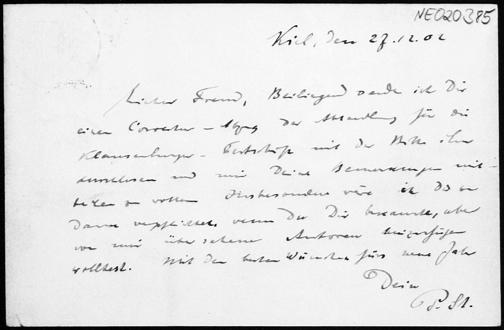 NE020385
Kiel, den 27.12.02
Lieber Freund, Beiliegend sende ich Dir
einen Correctur- der Abhandlung für die
Klausenburger-Festschrift mit der Bitte ihn
durchlesen und mir Deine Bemerkungen mit-
teilen zu wollen Insbesondere wäre ich Dir zu
Danke verpflichtet, wenn Du Dir bekannte, aber
von mir übersehene Autoren beizufügen
wolltest. Mit den besten Wünschen fürs neue Jahr
Dein
P. St.